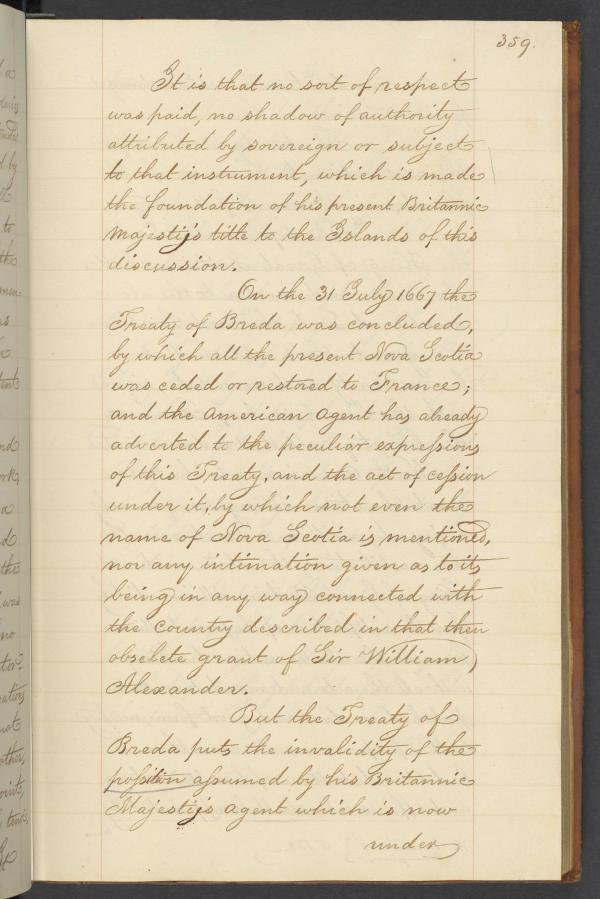 359.
It is that no sort of respect
was paid, no shadow of authority
attributed by sovereign or subject
to that instrument, which is made
the foundation of his present Britannic
Majesty's title to the Islands of this
discussion.
On the 31 July 1667 the
Treaty of Breda was concluded,
by which all the present Nova Scotia
was ceded or restored to France;
and the American Agent has already
adverted to the peculiar expressions
of this Treaty, and the act of cession
under it, by which not even the
name of Nova Scotia is mentioned,
nor any intimation given as to its
being in any way connected with
the country described in that then
obselete grant of Sir William
Alexander.
But the Treaty of
Breda puts the invalidity of the
position assumed by his Britannic
Majesty's Agent which is now
under